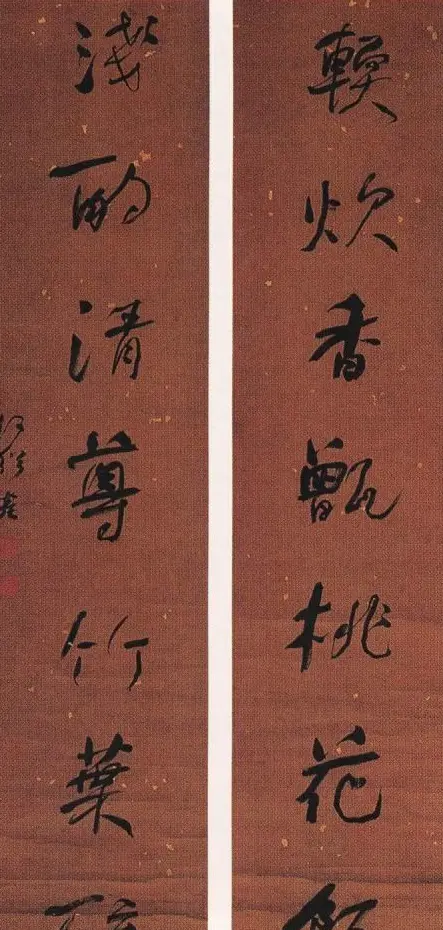 輭炊香甑桃花
淺酌清尊竹葉